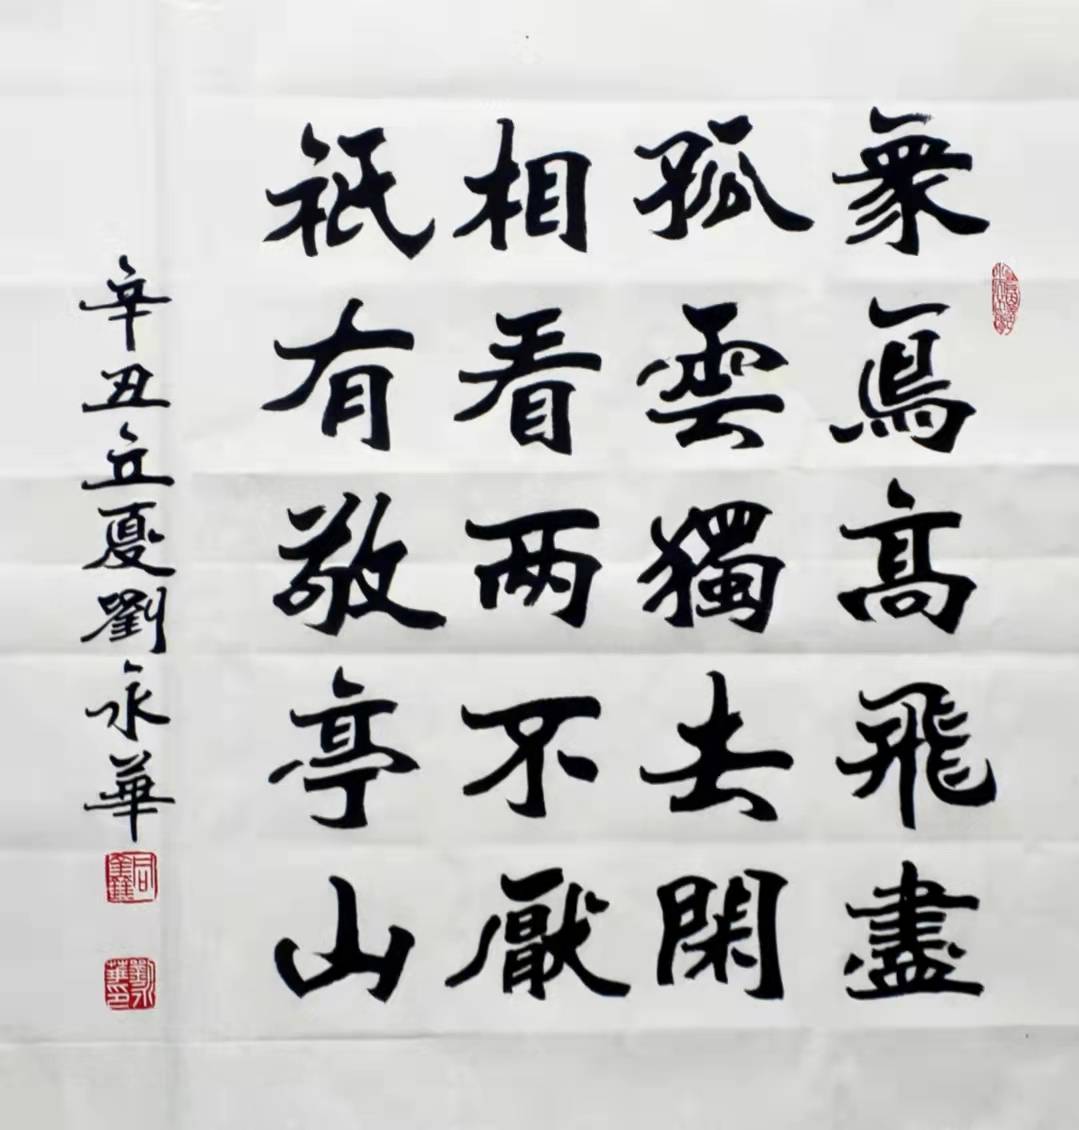 衆鳥高飛盡
孤雲獨去閑
相看兩不厭
祇有敬亭山
辛丑立夏劉永華
劉永華印